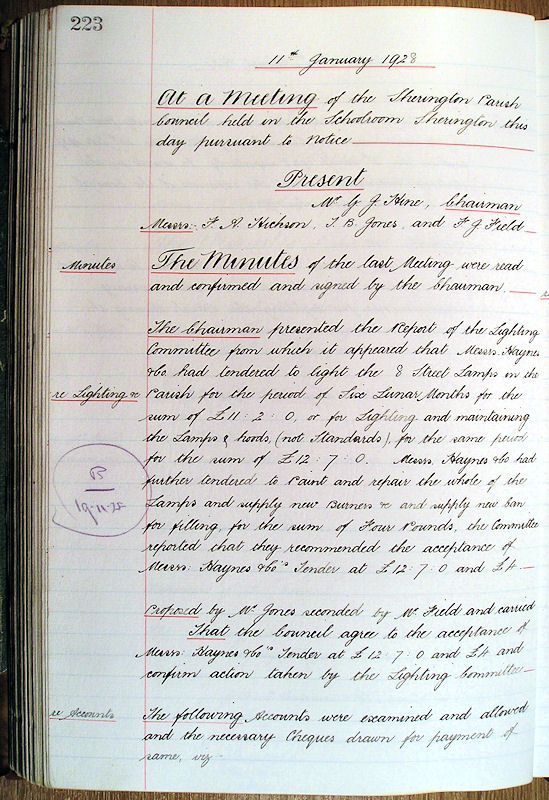 223
11th January 1928
At a Meeting of the Sherington Parish
Council held in the Schoolroom Sherington this
day pursuant to Notice
Present
Mr G J Hine, Chairman
Messrs: F. A. Hickson, I. B. Jones, and F J Field
Minutes
The Minutes of the last Meeting were read
and confirmed and signed by the Chairman.
The Chairman presented the Report of the Lighting
Committee from which it appeared that Messrs: Haynes
&Co had tendered to light the 8 Street Lamps in the
re Lighting &c
Parish for the period of Six Lunar Months for the
sum of £11:2:0, or for Lighting and maintaining
the Lamps & hoods, (not Standards), for the same period
for the sum of £12:7:0. Messrs. Haynes &Co had
B
19-11-28
further tendered to Paint and repair the whole of the
Lamps and supply new Burners &c and supply new Can
for filling, for the sum of Four Pounds, the Committee
reported that they recommended the acceptance of
Messrs: Haynes &Co's Tender at £12:7:0 and £4
Proposed by Mr Jones seconded by Mr Field and carried
That the Council agree to the acceptance of
Messrs: Haynes &Co's Tender at £12:7:0 and £4 and
confirm action taken by the Lighting Committee
re Accounts
The following Accounts were examined and allowed
and the necessary Cheques drawn for payment of
same, viz